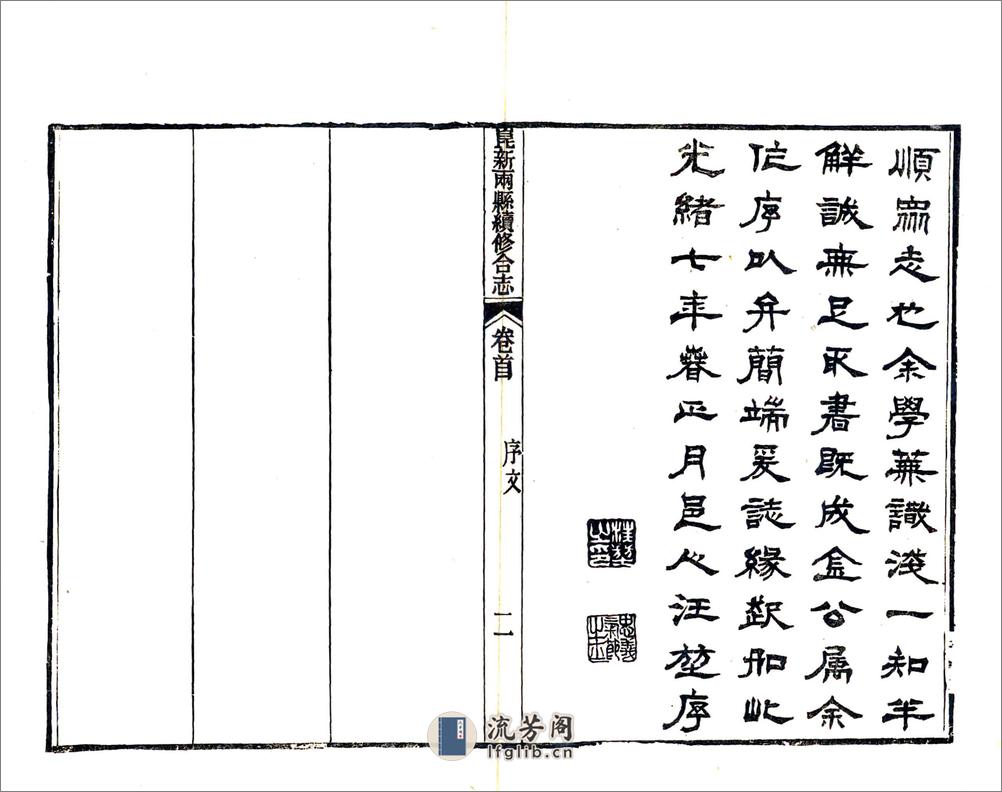 順眾志也余學蕪識淺一知半
觧誠無足取書既成金公属余
作序以弁簡端爰誌緣起如此
光緒七年春正月邑人汪堃序
崑新兩縣續修合志 卷首 序文 二
流芳阁
lfglib.cn